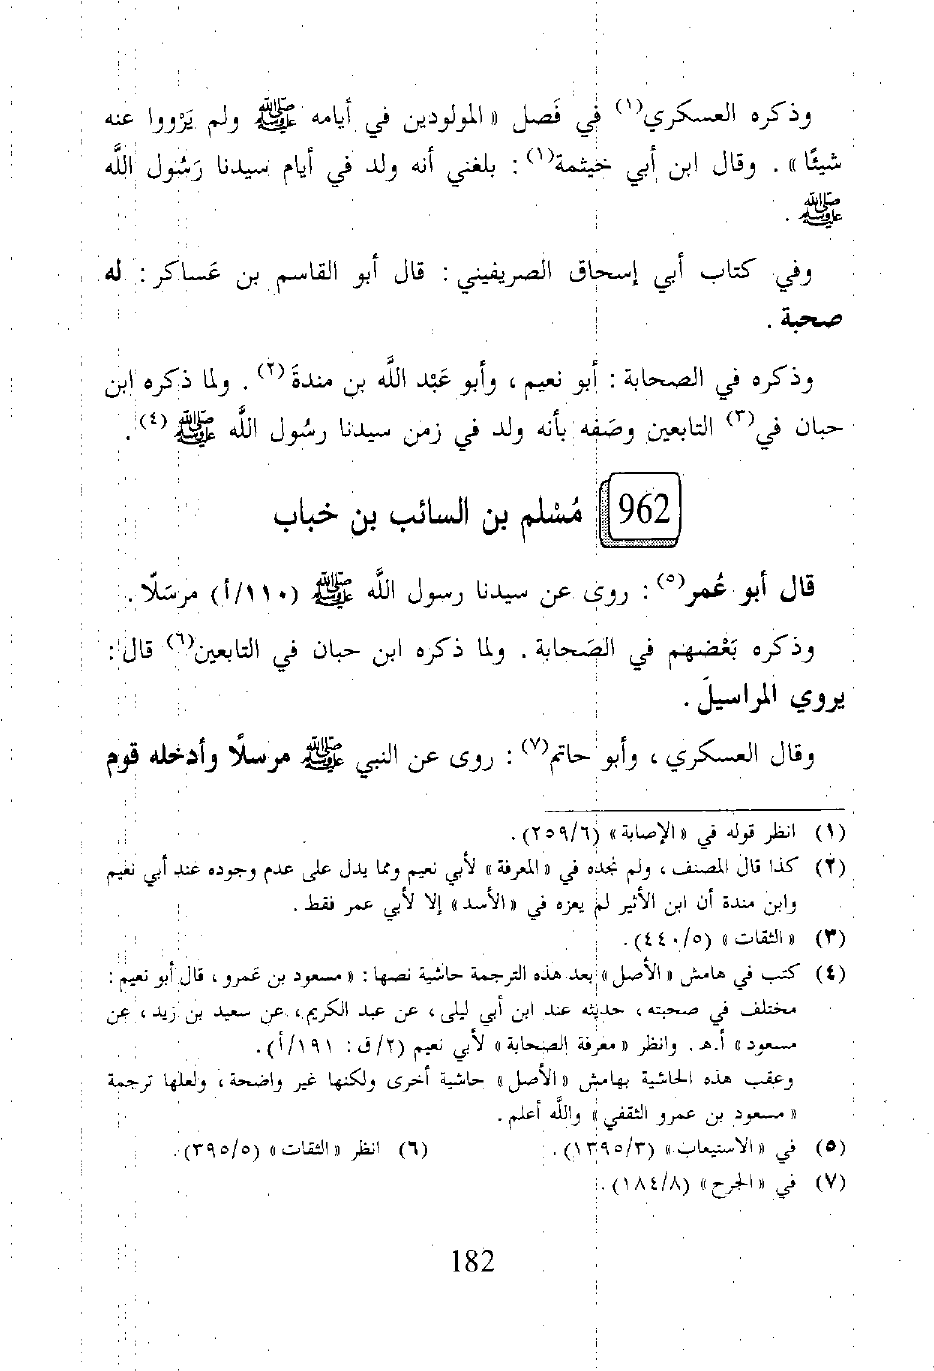 وذكره العسكري(١) في فَصل « المولودين في أيامه ﷺ ولم يَرْووا عنه
شيئًا » . وقال ابن أبي خيثمة(١) : بلغني أنه ولد في أيام سيدنا رَسُول اللَّه
ﷺ .
وفي كتاب أبي إسحاق الصريفيني : قال أبو القاسم بن عَساكر : له
صحبة .
وذكره في الصحابة : أبو نعيم ، وأبو عَبْد اللَّه بن مندةَ(٢) . ولما ذكره ابن
حبان في(٣) التابعين وصَفه بأنه ولد في زمن سيدنا رسُول اللَّه ﷺ(٤) .
962 مُسْلم بن السائب بن خباب
قال أبو عُمر(٥) : روى عن سيدنا رسول اللَّه ﷺ (١١٠/أ) مرسَلًا .
وذكره بَعْضهم في الصَحابة . ولما ذكره ابن حبان في التابعين(٦) قال :
يروي المراسيلَ .
وقال العسكري ، وأبو حاتم(٧) : روى عن النبي ﷺ مرسلًا وأدخله قوم
(١) انظر قوله في « الإصابة » (٢٥٩/٦) .
(٢) كذا قال المصنف ، ولم نجده في « المعرفة » لأبي نعيم ومما يدل على عدم وجوده عند أبي نعيم
وابن مندة أن ابن الأثير لم يعزه في « الأسد » إلا لأبي عمر فقط .
(٣) « الثقات » (٤٤٠/٥) .
(٤) كتب في هامش « الأصل » بعد هذه الترجمة حاشية نصها : « مسعود بن عَمرو ، قال أبو نعيم :
مختلف في صحبته ، حديثه عند ابن أبي ليلى ، عن عبد الكريم ، عن سعيد بن زيد ، عن
مسعود » أ.هـ . وانظر « معرفة الصحابة » لأبي نعيم (٢/ق : ١٩١/أ) .
وعقب هذه الحاشية بهامش « الأصل » حاشية أخرى ولكنها غير واضحة ، ولعلها ترجمة
« مسعود بن عمرو الثقفي » واللَّه أعلم .
(٥) في « الاستيعاب » (١٣٩٥/٣) . (٦) انظر « الثقات » (٣٩٥/٥) .
(٧) في « الجرح » (١٨٤/٨) .
182